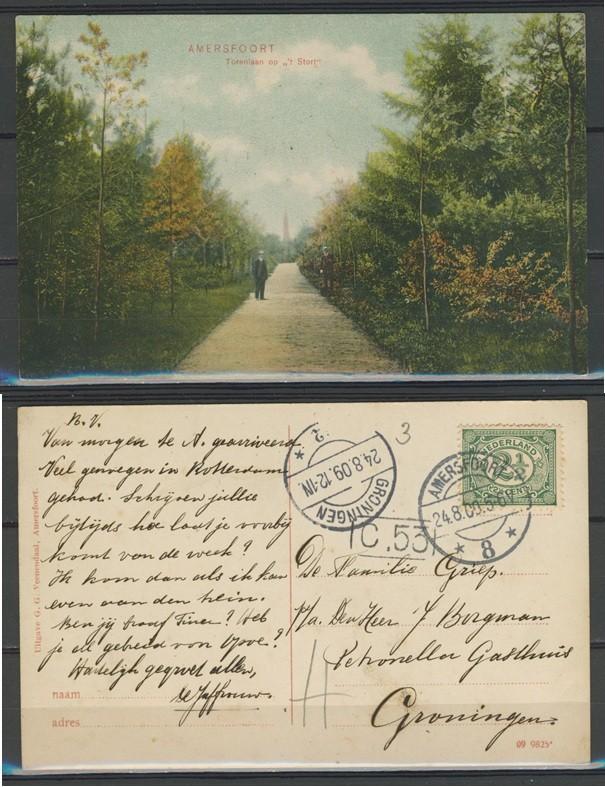 AMERSFOORT
Torenlaan op „'t Stort"
B.V.
Van morgen te A. gearriveerd.
Veel genoegen in Rotterdam
gehad. Schrijven jullie
bijtijds hoe laat je voorbij
komt van de week?
Ik kom dan als ik kan
even aan den trein.
Ben jij braaf Tiner? Heb
je al gebreid van Opoe?
Hartelijk gegroet allen,
de Juffrouw.
naam
adres
Uitgave G. G. Veenendaal, Amersfoort.
2
24.8.09.12-1N.
GRONINGEN
3
C.53
NEDERLAND
2½
CENT
AMERSFOORT
24.8.09.
8
De Familie Griep.
p/a. Den Heer J Borgman
Petronella Gasthuis
Groningen.
09 9825